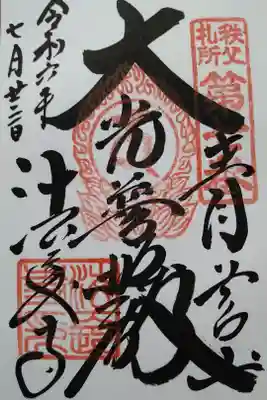 秩父
札所
第七番
青苔山
大光普照殿
法長寺
令和六年
七月廿二日